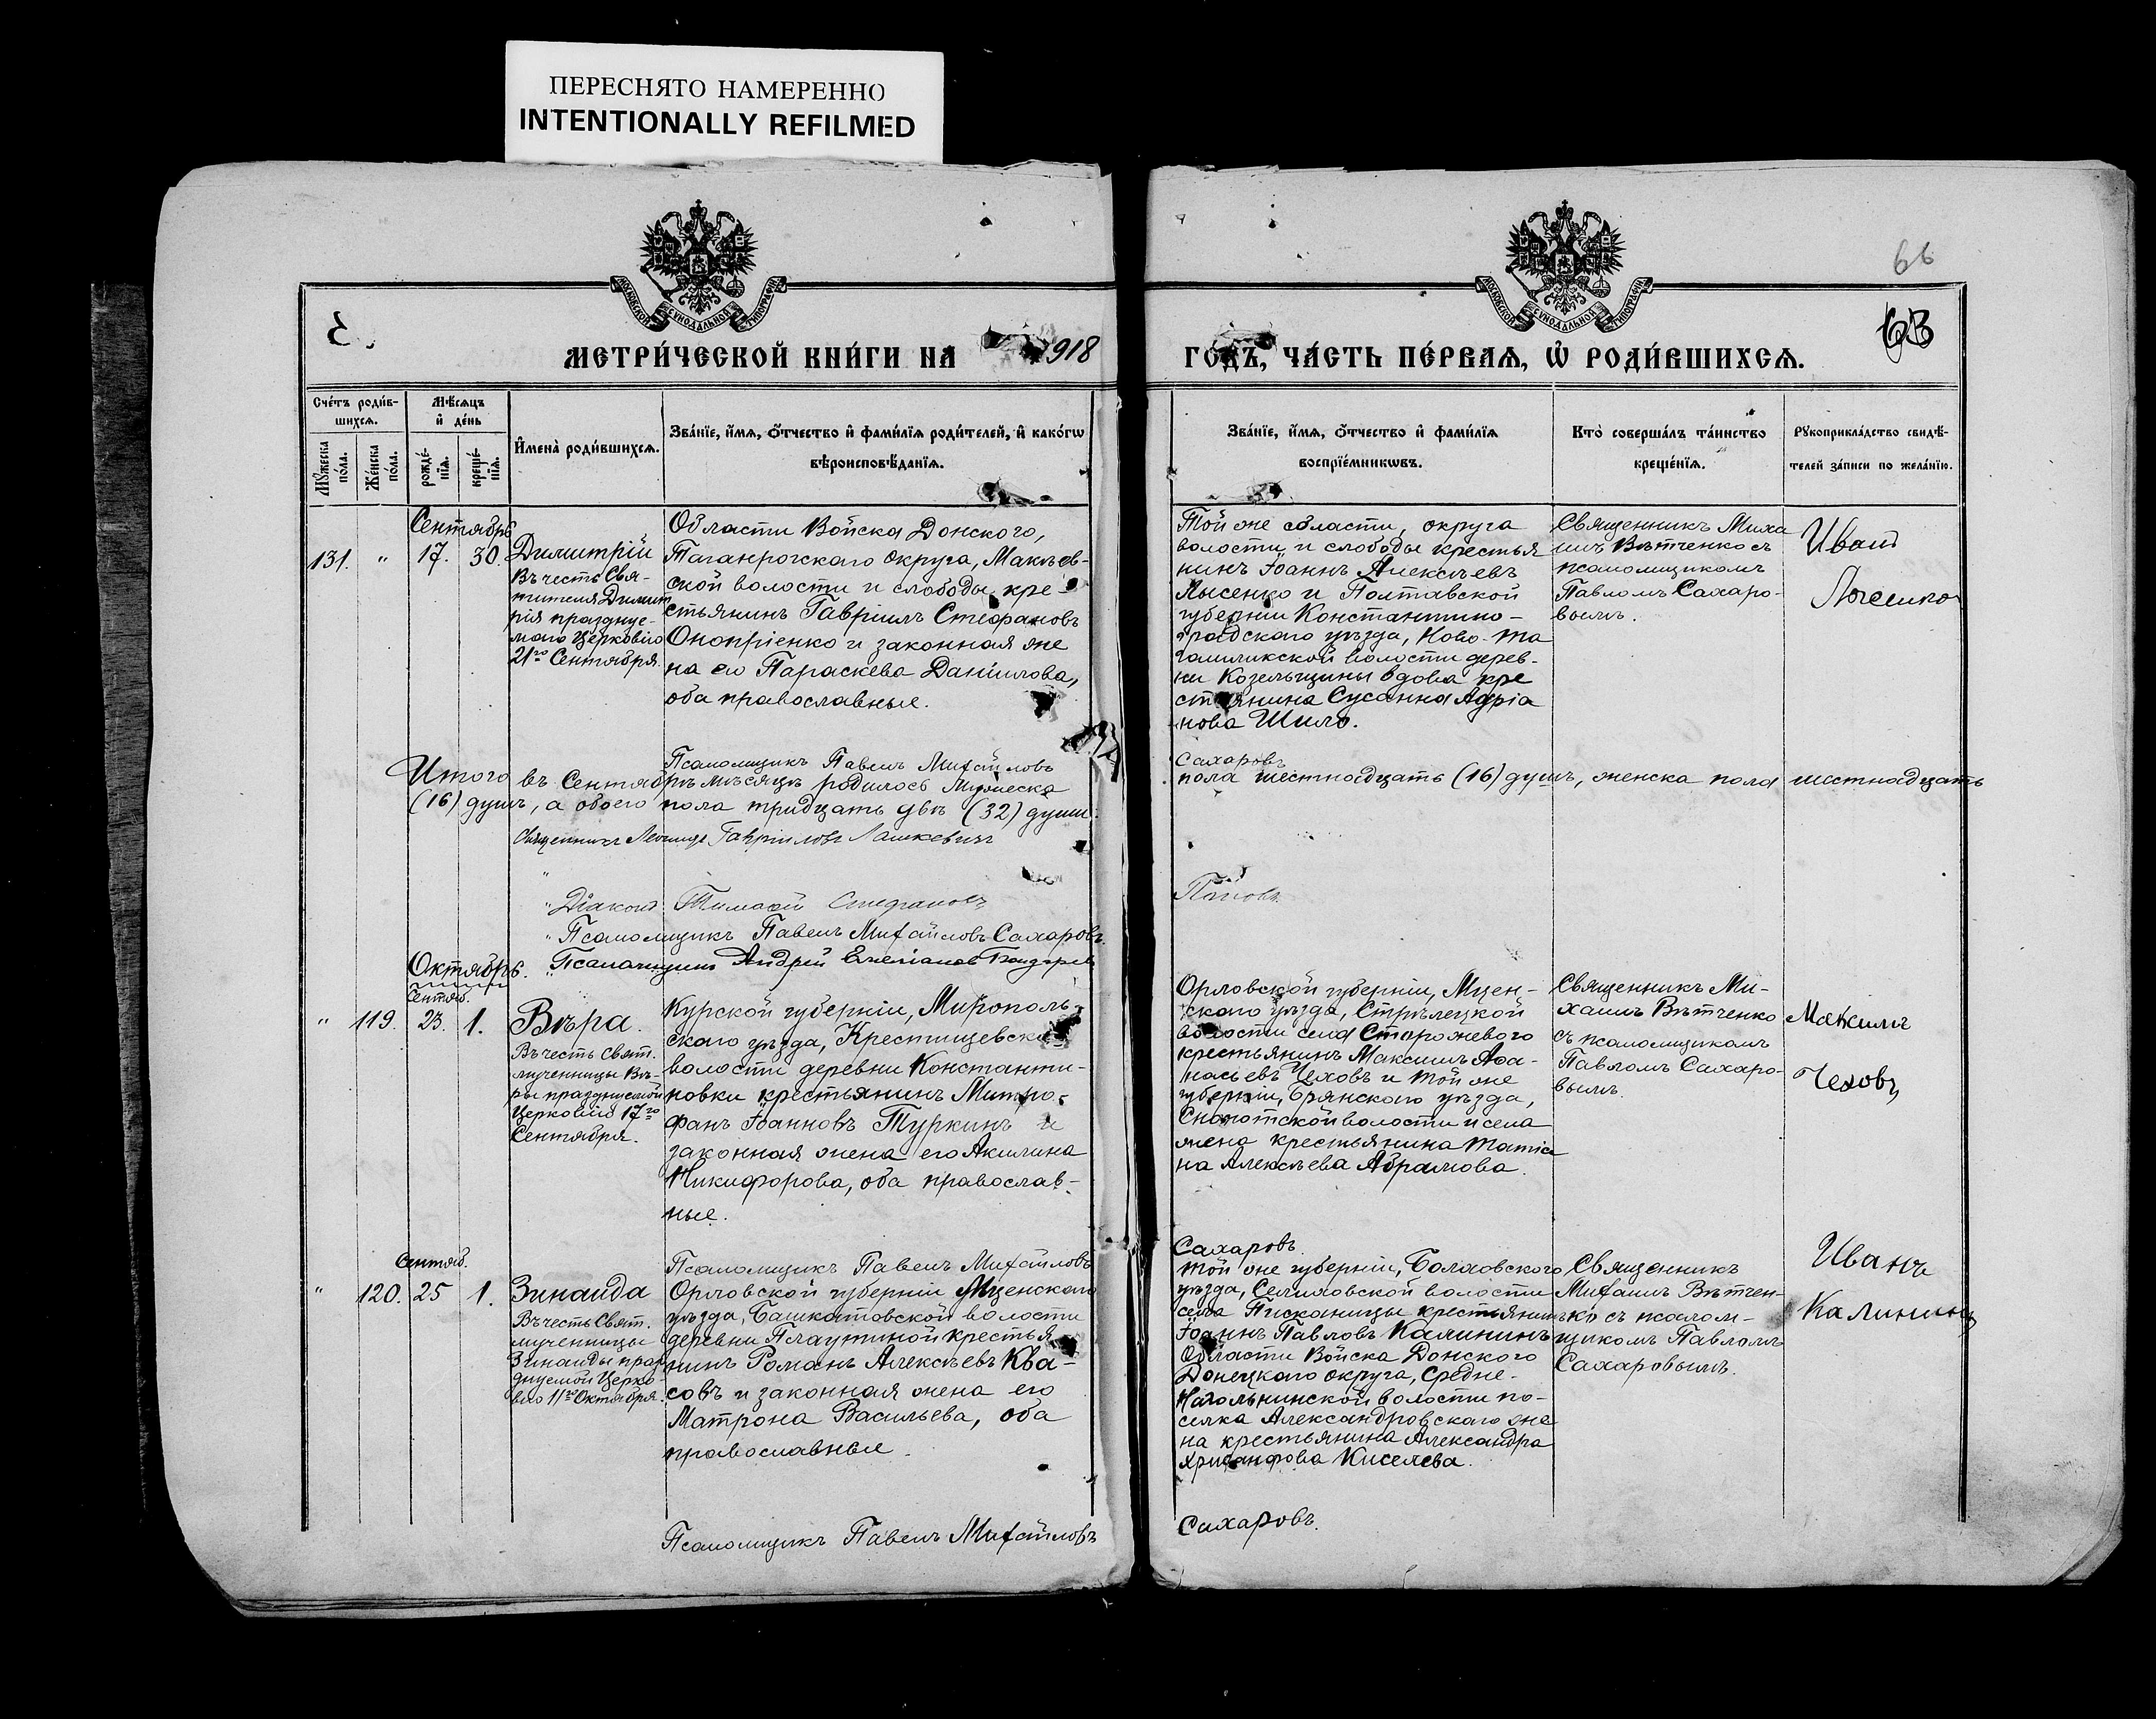 ПЕРЕСНЯТО НАМЕРЕННО
INTENTIONALLY REFILMED
МОСКОВСКОЙ СѴНОДАЛЬНОЙ ТИПОГРАФІИ
МОСКОВСКОЙ СѴНОДАЛЬНОЙ ТИПОГРАФІИ
66
63
МЕТРИ́ЧЕСКОЙ КНИ́ГИ НА 1918
ГОДЪ, ЧА́СТЬ ПЕ́РВАѦ, Ѡ҆ РОДИ́ВШИХСѦ.
Сче́тъ роди́в-
шихсѧ.
Мꙋ́жеска по́ла.
Же́нска по́ла.
Мѣ́сѧцъ
и҆ де́нь
рожде́-
нїѧ.
креще́-
нїѧ.
И҆мена̀ роди́вшихсѧ.
Зва́нїе, и҆́мѧ, ѻ҆́тчество и҆ фами́лїѧ роди́телей, и҆ како́гѡ
вѣроисповѣ́данїѧ.
Зва́нїе, и҆́мѧ, ѻ҆́тчество и҆ фами́лїѧ
воспрїе́мникѡвъ.
Кто̀ соверша́лъ та́инство
креще́нїѧ.
Рꙋкоприкла́дство свидѣ́-
телей за́писи по жела́нїю.
Сентябрь
131. " 17. 30.
Димитрій
Въ честь Свя-
тителя Димит
рія празднуе-
маго Церковію
21го Сентября.
Области Войска Донского,
Таганрогскаго округа, Макѣев-
ской волости и слободы, кре-
стьянинъ Гавріилъ Стефановъ
Оноприенко и законная же
на его Параскева Даніилова,
оба православные.
Той же области, округа
волости и слободы крестья
нинъ Іоаннъ Алексѣевъ
Лысенко и Полтавской
губерніи Константино-
градскаго уѣзда, Ново-та
гамликской волости дерев-
ни Козельщины вдова кре
стьянина Сусанна Адріа
нова Шило.
Священникъ Миха
илъ Вѣтченко съ
псаломщикомъ
Павломъ Сахаро-
вымъ.
Иван
Псаломщикъ Павелъ Михайловъ
Сахаровъ
Итого въ Сентябрѣ мѣсяцѣ родилось мужеска
пола шестнадцать (16) душъ, женска пола шестнадцать
(16) душъ, а обоего пола тридцать двѣ (32) души.
Священникъ Леонидъ Гавріиловъ Лашкевичъ
" Діаконъ Тимофей Стефановъ
Поповъ
" Псаломщикъ Павелъ Михайловъ Сахаровъ.
" Псаломщикъ Андрей Бондарев
Октябрь.
Сентяб.
" 119. 23. 1.
Вѣра.
Въ честь Свят.
мученицы Вѣ-
ры празднуемой
Церковію 17го
Сентября.
Курской губерніи, Мирополь-
скаго уѣзда, Крестищевской
волости деревни Константи-
новки крестьянинъ Митро-
фанъ Іоанновъ Туркинъ и
законная жена его Акилина
Никифорова, оба православ-
ные.
Орловской губерніи, Мцен-
скаго уѣзда, Стрѣлецкой
волости села Сторожевого
крестьянинъ Максимъ Аѳа-
насьевъ Чеховъ и той же
губерніи, Брянскаго уѣзда,
Снопотской волости и села
жена крестьянина Татіа
на Алексѣева Абрамова.
Священникъ Ми-
хаилъ Вѣтченко
съ псаломщикомъ
Павломъ Сахаро-
вымъ.
Максимъ
Чеховъ
Псаломщикъ Павелъ Михайловъ
Сахаровъ.
Сентяб.
" 120. 25 1.
Зинаида
Въ честь Свят.
мученицы
Зинаиды праз
днуемой Церко-
вію 11го Октября.
Орловской губерніи Мценскаго
уѣзда, Башкатовской волости
деревни Плаутиной крестья
нинъ Романъ Алексѣевъ Ква-
совъ и законная жена его
Матрона Васильева, оба
православные.
Той же губерніи, Болховского
уѣзда, Селиховской волости
села Писканицы крестьянинъ
Іоаннъ Павловъ Калининъ
Области Войска Донского
Донецкаго округа, Средне-
Нагольнинской волости по-
селка Александровскаго же
на крестьянина Александра
Хрисанфова Киселева.
Священникъ
Михаилъ Вѣтчен-
ко съ псалом-
щикомъ Павломъ
Сахаровымъ.
Иванъ
Калининъ
Псаломщикъ Павелъ Михайловъ
Сахаровъ.